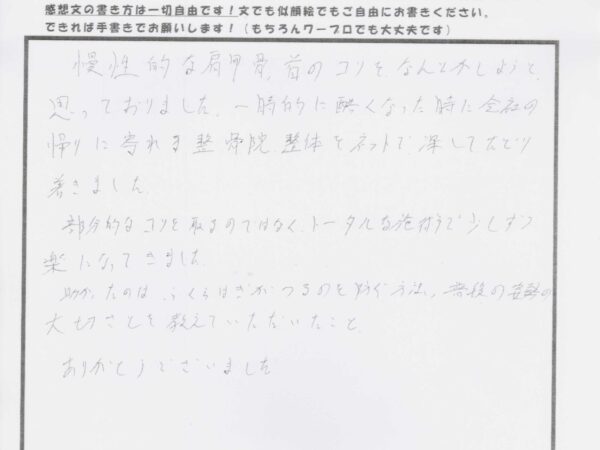 感想文の書き方は一切自由です！文でも似顔絵でもご自由にお書きください。
できれば手書きでお願いします！（もちろんワープロでも大丈夫です）
慢性的な肩甲骨、首のコリを、なんとかしようと、
思っておりました。一時的に酷くなった時に会社の
帰りに寄れる整骨院、整体をネットで探してたどり
着きました。
部分的なコリを取るのではなく、トータルな施術で少しずつ
楽になってきました。
助かったのは、ふくらはぎがつるのを防ぐ方法、普段の姿勢の
大切さとを教えていただいたこと。
ありがとうございました